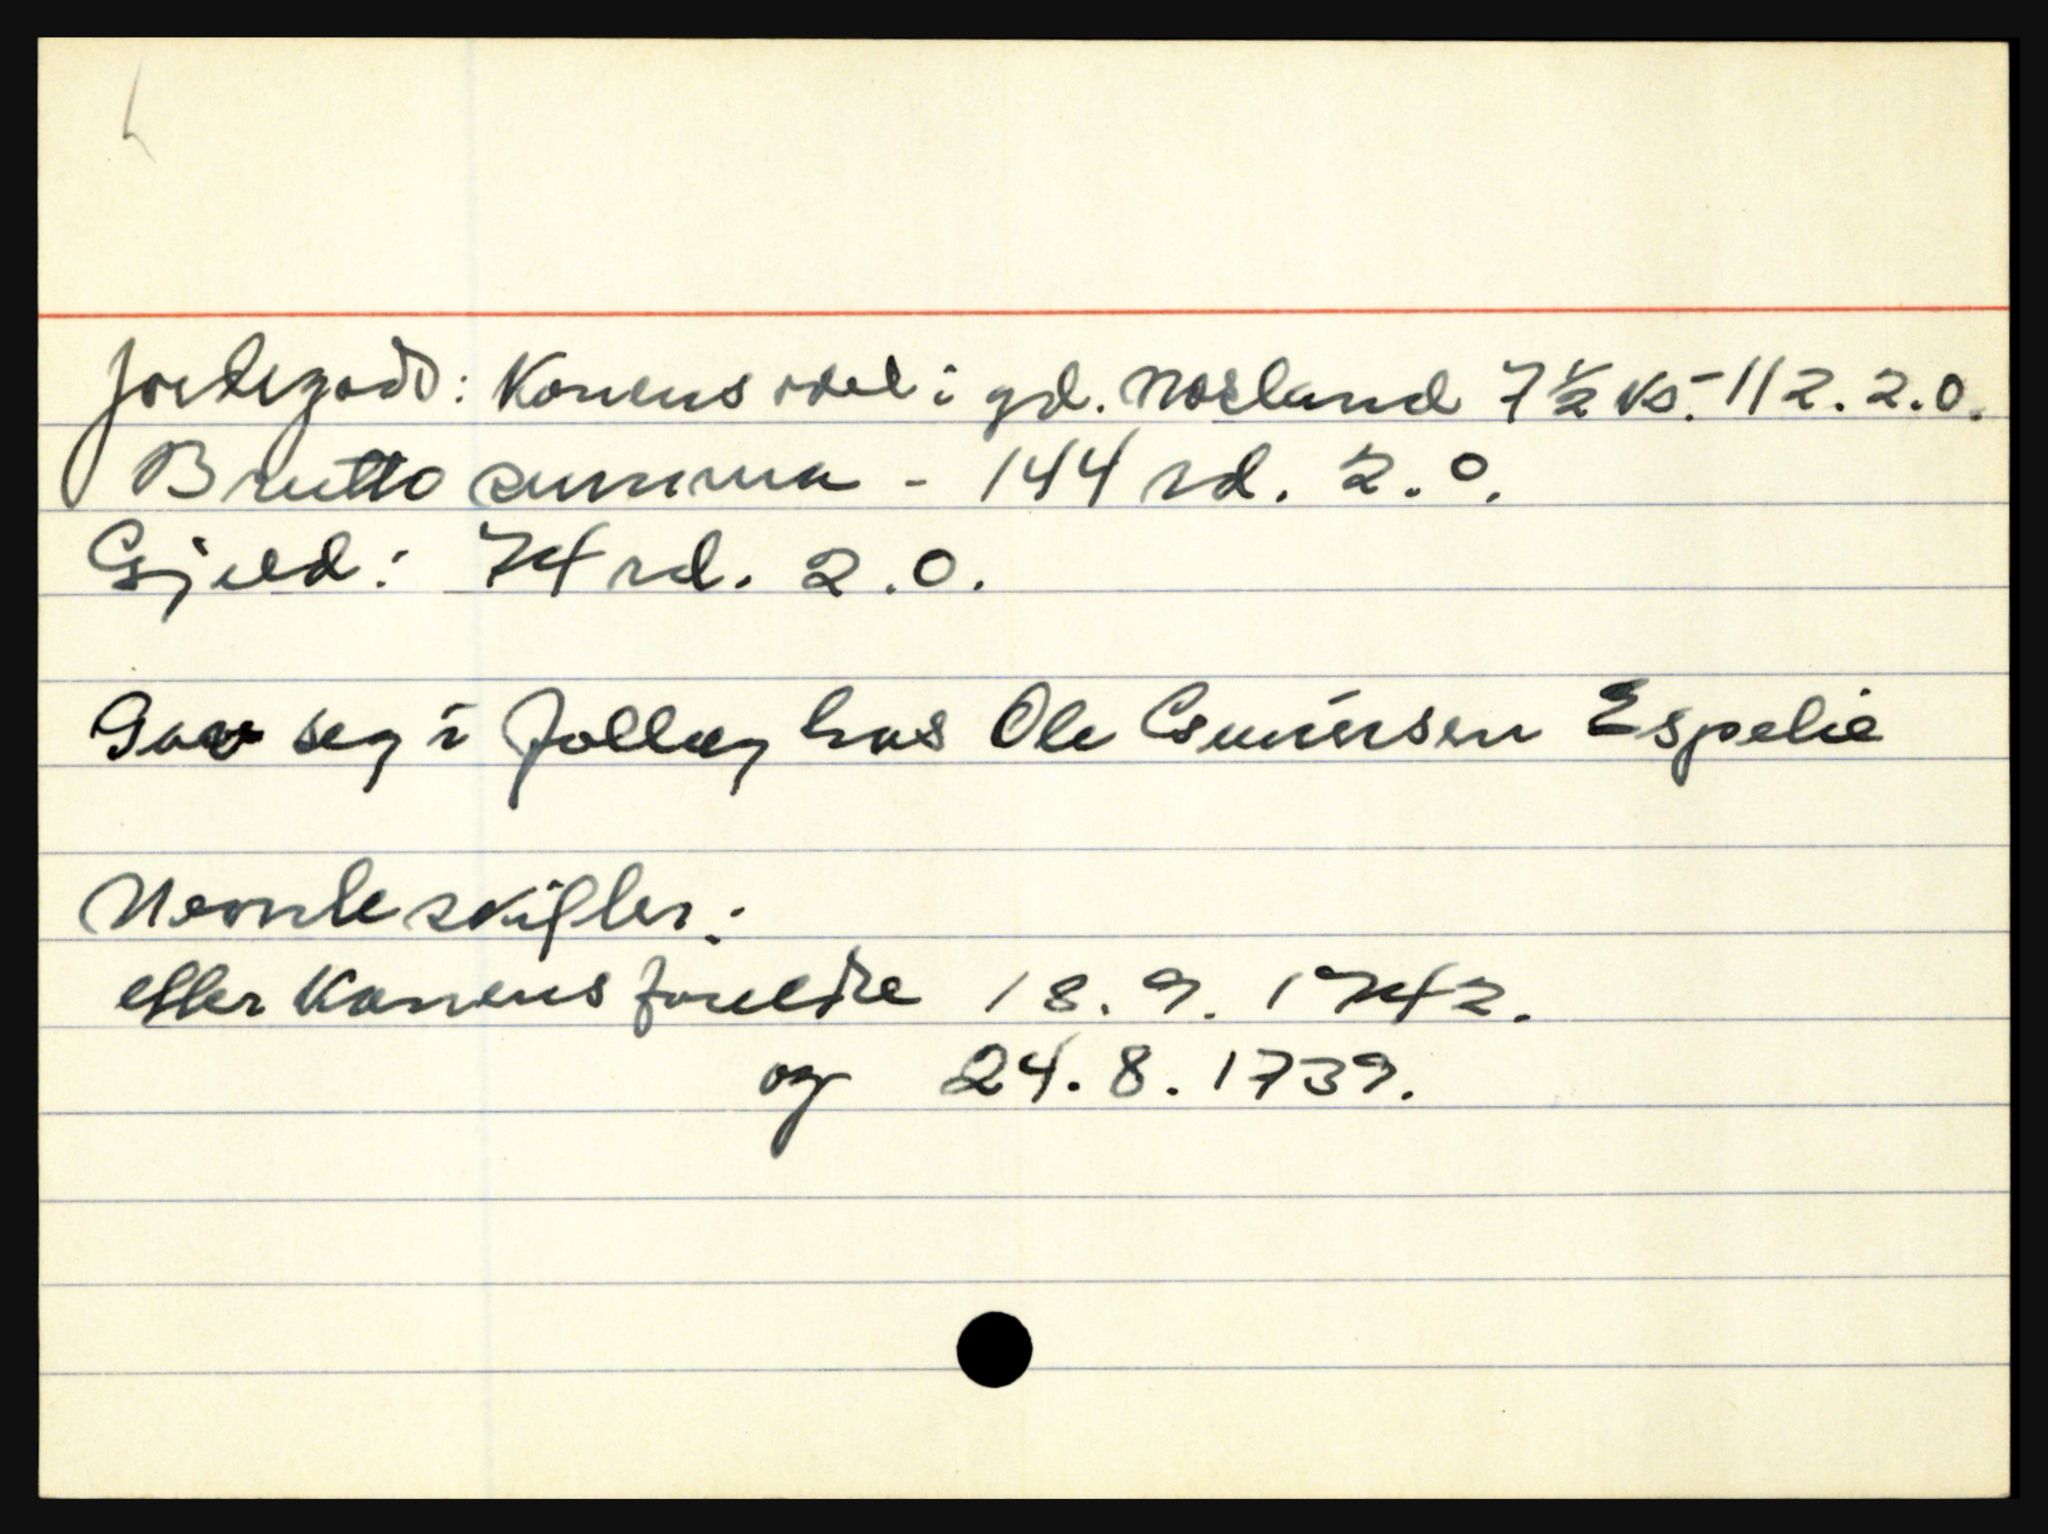 Jordegods: Konens odel i gd. Mosland 7 ½ ks. - 112.2.0.
Brutto summa - 144 rd. 2.0.
Gjeld: 74 rd. 2.0.
Gav seg i follog hos Ole Gunnersen Espelie
Nevnte skifter:
etter konens foreldre 18.9.1742.
og 24.8.1739.